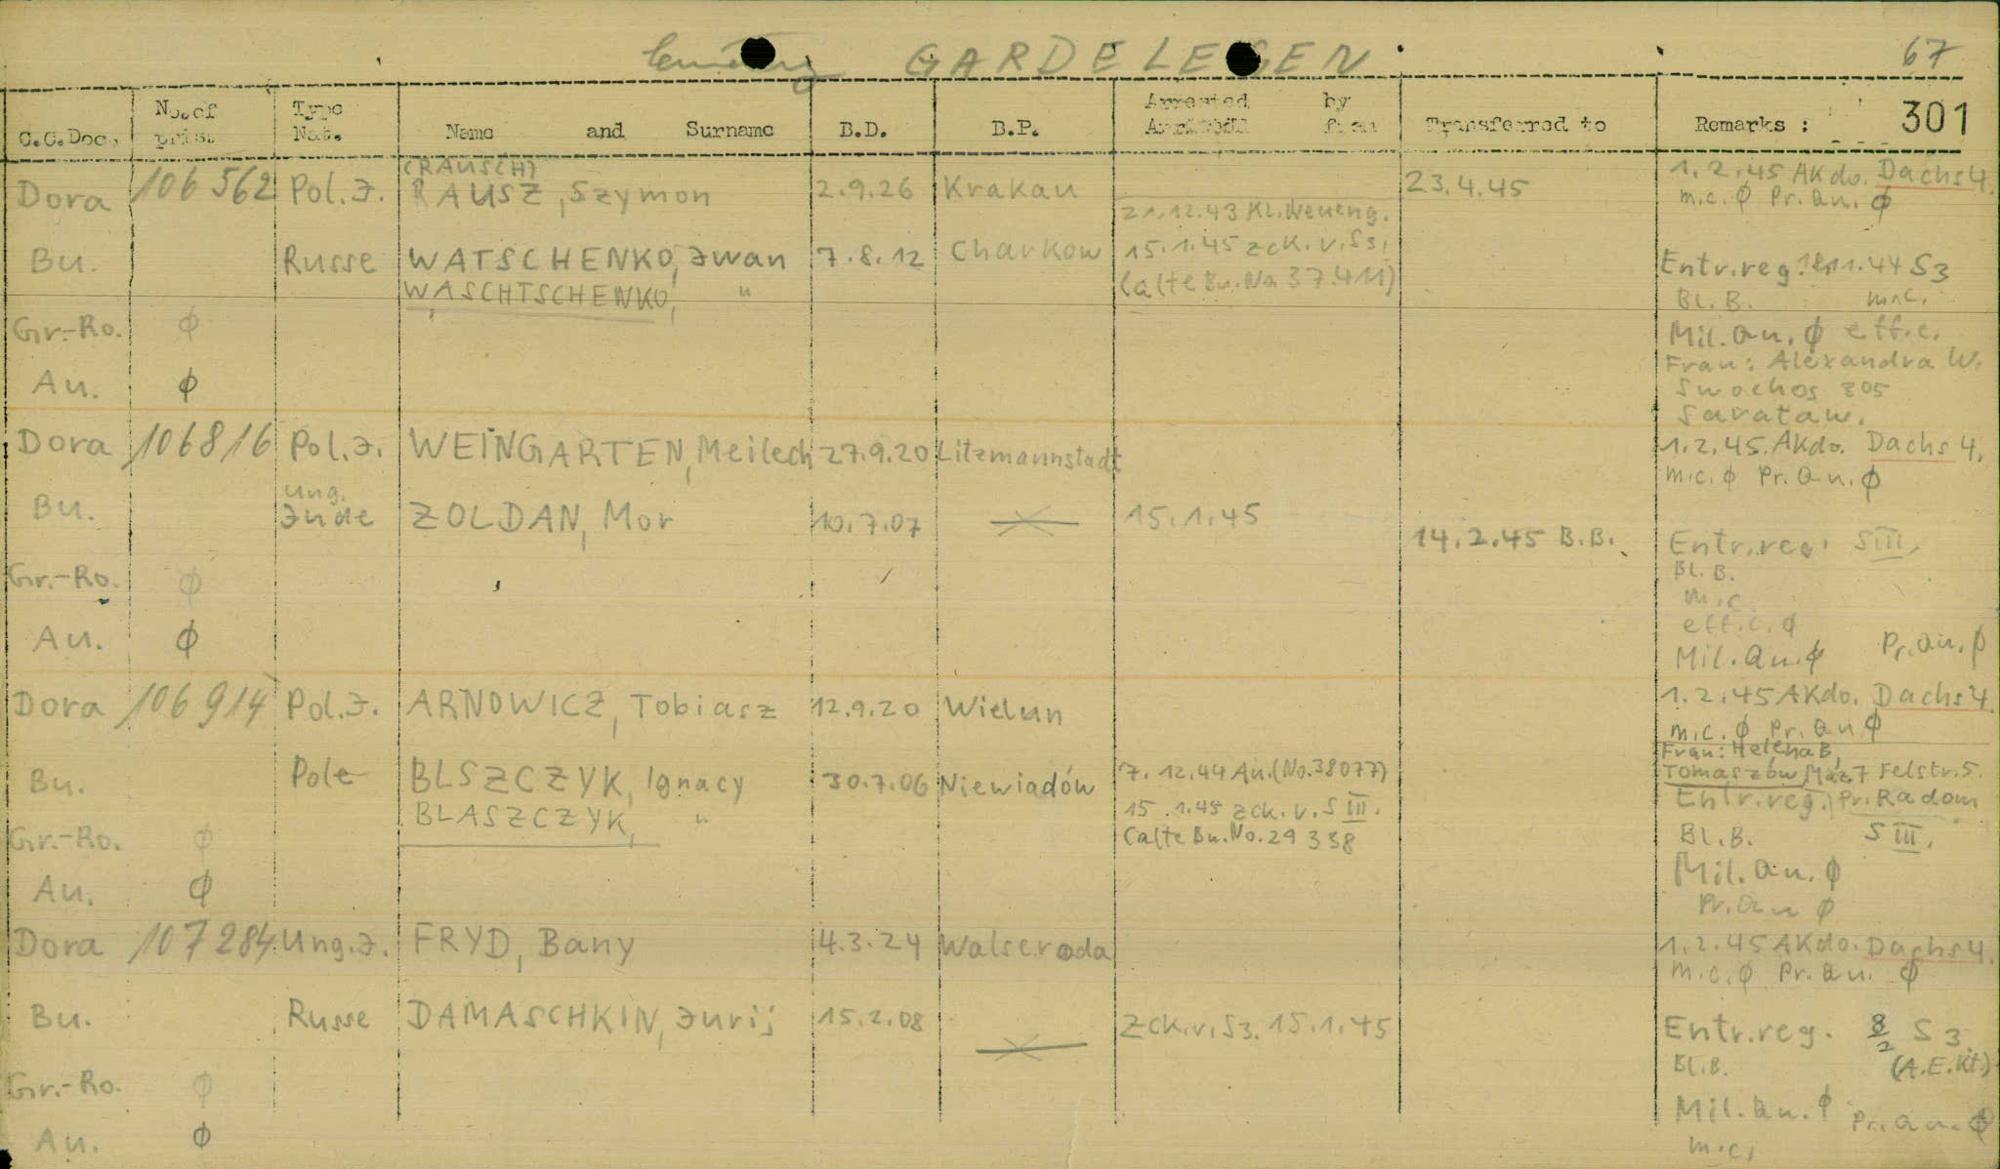 Cemetery GARDELEGEN 67
C.C.Doc. No. of prist. Type Nat. Name and Surname B.D. B.P. Arrested by from Transferred to Remarks : 301
(RAUSCH)
Dora 106 562 Pol.J. RAUSZ, Szymon 2.9.26 Krakau 23.4.45 1.2.45 AKdo. Dachs 4.
m.c. ø Pr.au. ø
21.12.43 Kl. Neueng.
Bu. Russe WATSCHENKO, Jwan 7.8.12 Charkow 15.1.45 zck. v. S3, Entr.reg. 44 S3
WASCHTSCHENKO, " (alte Bu. No 37.411) Bl.B. m.c.
Gr.-Ro. ø Mil.au. ø eff.c.
Frau: Alexandra W.
Au. ø Swochos 805
Sarataw.
Dora 106816 Pol.J. WEINGARTEN, Meilech 27.9.20 Litzmannstadt 1.2.45. AKdo. Dachs 4.
m.c. ø Pr.au. ø
Bu. Ung. Jude ZOLDAN, Mor 10.7.07 15.1.45
14.2.45 B.B. Entr.reg. SIII,
Bl.B.
Gr.-Ro. ø m.c.
eff.c. ø
Au. ø Mil.au. ø Pr.au. ø
Dora 106 914 Pol.J. ARNOWICZ, Tobiasz 12.9.20 Wielun 1.2.45 AKdo. Dachs 4.
m.c. ø Pr.au ø
Frau: Helena B,
Bu. Pole BLSZCZYK, Ignacy 30.7.06 Niewiadów 7.12.44 Au. (No.38077) Tomaszów Maz. 7 Felstr. 5.
BLASZCZYK, " 15.1.45 zck. v. S III. Entr.reg. Pr. Radom
Gr.-Ro. ø (alte Bu. No. 29 338 Bl.B. S III.
Au. ø Mil.au. ø
Pr.au ø
Dora 107 284 Ung.J. FRYD, Bany 4.3.24 Walseroda 1.2.45 AKdo. Dachs 4.
m.c. ø Pr.au. ø
Bu. Russe DAMASCHKIN, Jurij 15.2.08 zck. v. S3. 15.1.45 Entr.reg. 8/2 S3
Bl.B. (A.E.Kt.)
Gr.-Ro. ø Mil.au. ø Pr.au. ø
Au. ø m.c,